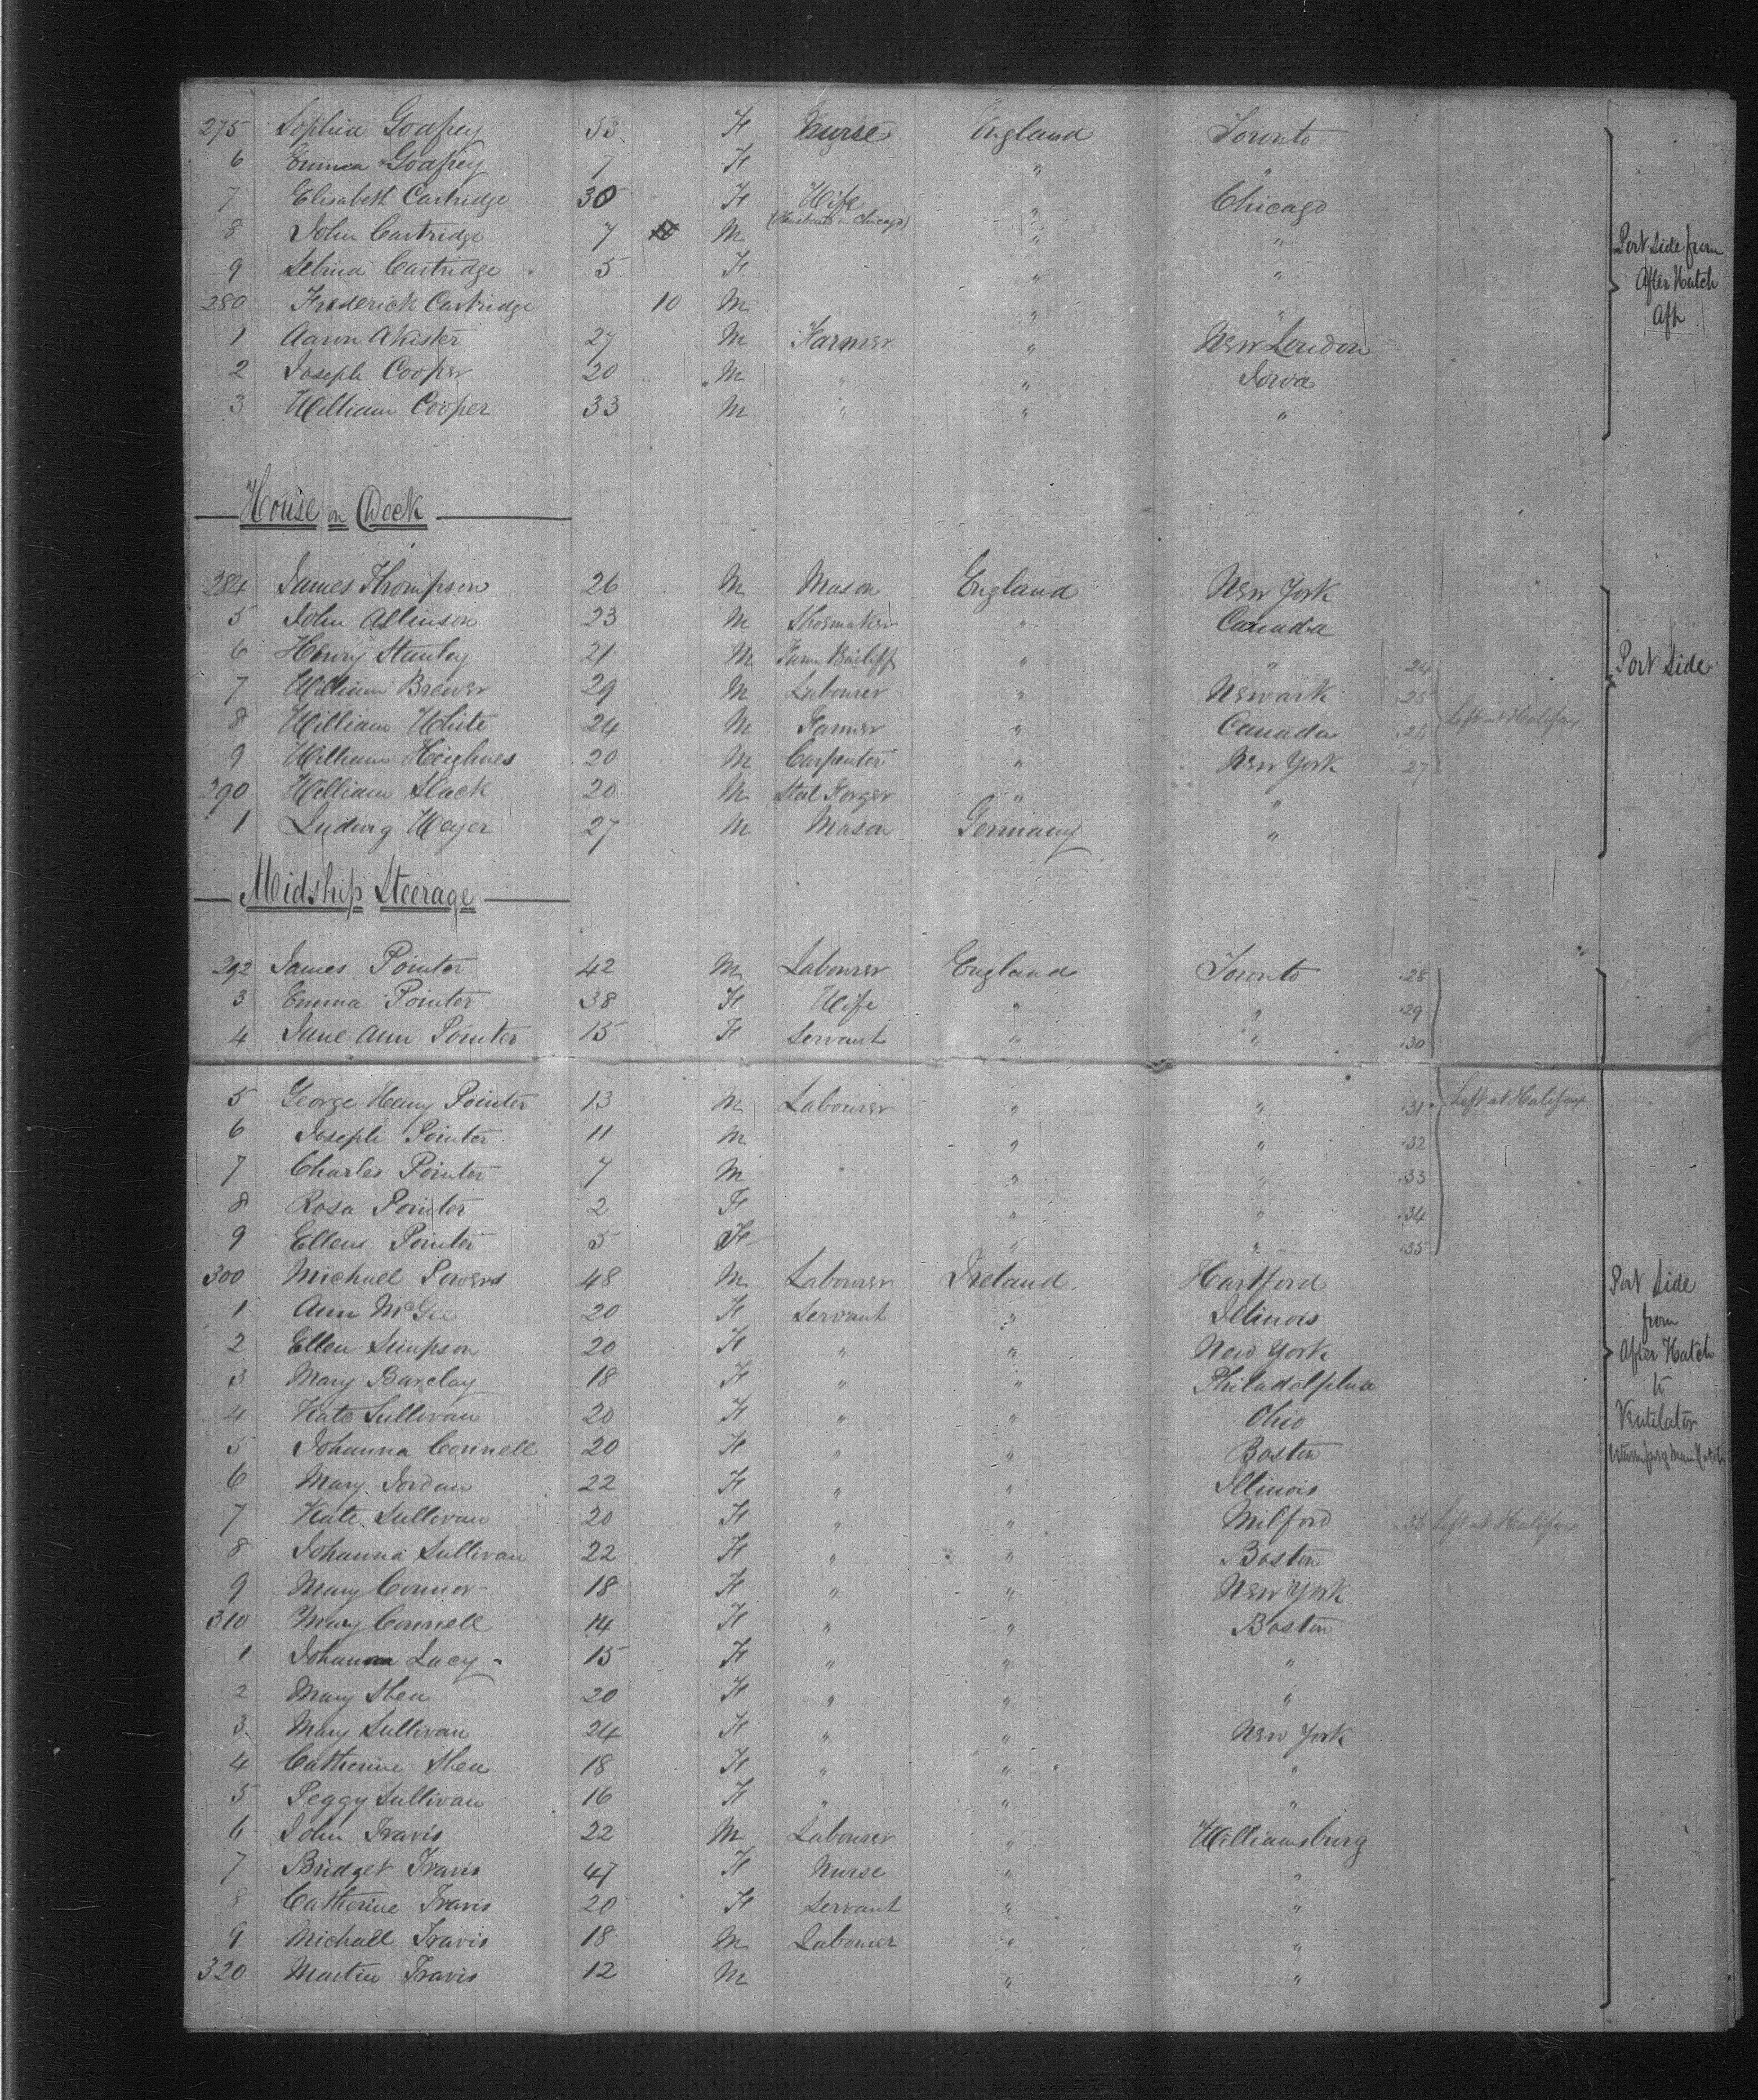 275 Sophia Goafrey 33 F Nurse England Toronto
6 Emma Goafrey 7 F " "
7 Elisabeth Cartridge 30 F Wife " Chicago
(Husband in Chicago)
8 John Cartridge 7 M " "
9 Selina Cartridge 5 F " "
280 Frederick Cartridge 10 M " "
Port Side from
After Hatch
Aft
1 Aaron Akister 27 M Farmer " New London
2 Joseph Cooper 20 M " " Iowa
3 William Cooper 33 M " " "
House on Deck
284 James Thompson 26 M Mason England New York
5 John Allinson 23 M Shoemaker " Canada
6 Henry Stanley 21 M Farm Bailiff " " 24
Port Side
7 William Brewer 29 M Labourer " Newark 25
Left at Halifax
8 William White 24 M Farmer " Canada 26
9 William Heighnes 20 M Carpenter " New York 27
290 William Slack 20 M Steel Forger " "
1 Ludwig Weyer 27 M Mason Germany "
Midship Steerage
292 James Pointer 42 M Labourer England Toronto 28
3 Emma Pointer 38 F Wife " " 29
4 Jane Ann Pointer 15 F Servant " " 30
5 George Henry Pointer 13 M Labourer " " 31 Left at Halifax
6 Joseph Pointer 11 M " " 32
7 Charles Pointer 7 M " " 33
8 Rosa Pointer 2 F " " 34
9 Ellen Pointer 5 F " " 35
300 Michael Powers 48 M Labourer Ireland Hartford
1 Ann McGee 20 F Servant " Illinois
2 Ellen Simpson 20 F " " New York
3 Mary Barclay 18 F " " Philadelphia
4 Kate Sullivan 20 F " " Ohio
5 Johanna Connell 20 F " " Boston
Port Side
from
After Hatch
to
Ventilator
6 Mary Jordan 22 F " " Illinois
7 Kate Sullivan 20 F " " Milford 36 Left at Halifax
8 Johanna Sullivan 22 F " " Boston
9 Mary Connor 18 F " " New York
310 Mary Connell 14 F " " Boston
1 Johanna Lacy 15 F " " "
2 Mary Shea 20 F " " "
3 Mary Sullivan 24 F " " New York
4 Catherine Shea 18 F " " "
5 Peggy Sullivan 16 F " " "
6 John Travis 22 M Labourer " Williamsburg
7 Bridget Travis 47 F Nurse " "
8 Catherine Travis 20 F Servant " "
9 Michall Travis 18 M Labourer " "
320 Martin Travis 12 M " "